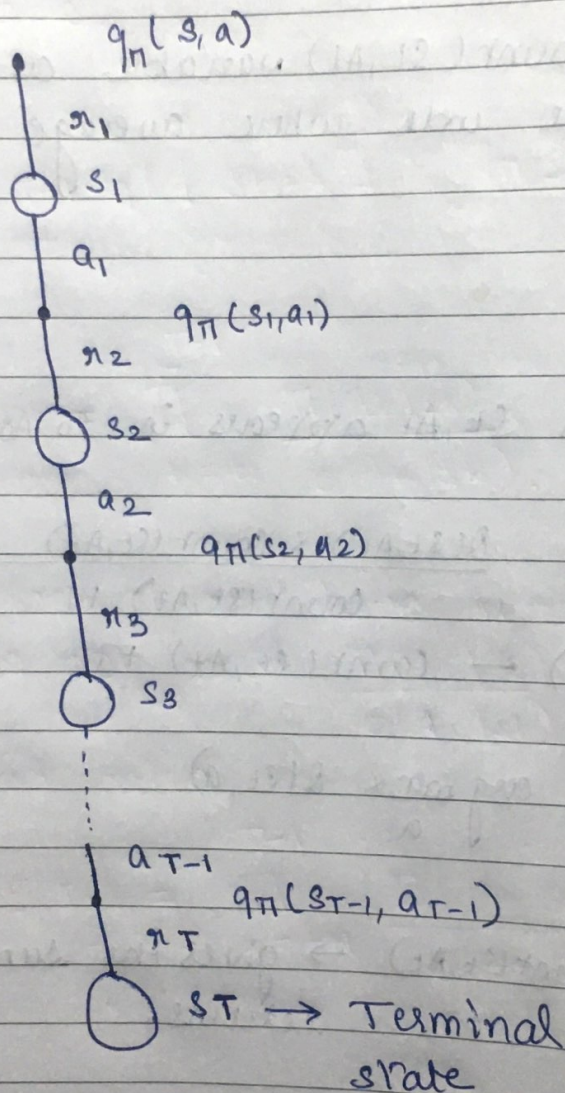 qπ(s,a)
r1
s1
a1
qπ(s1,a1)
r2
s2
a2
qπ(s2,a2)
r3
s3
aT-1
qπ(sT-1, aT-1)
rT
sT → Terminal
state